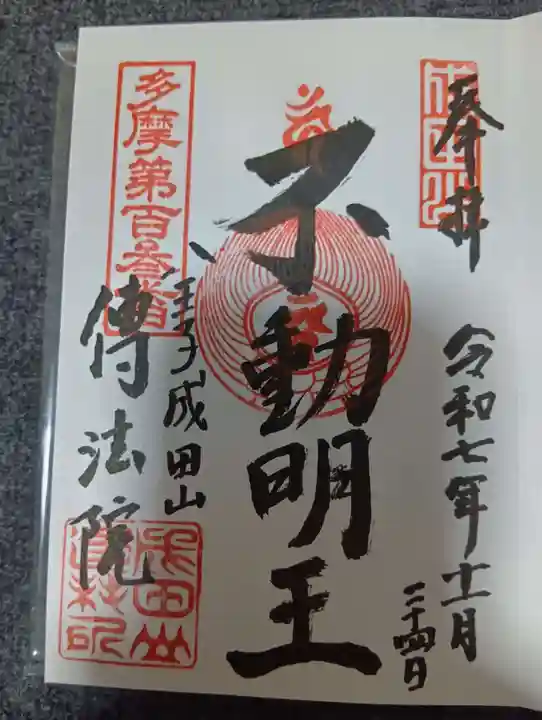 奉拝
令和七年十一月
二十四日
不動明王
八王子成田山
傳法院
多摩第百参番
成田山